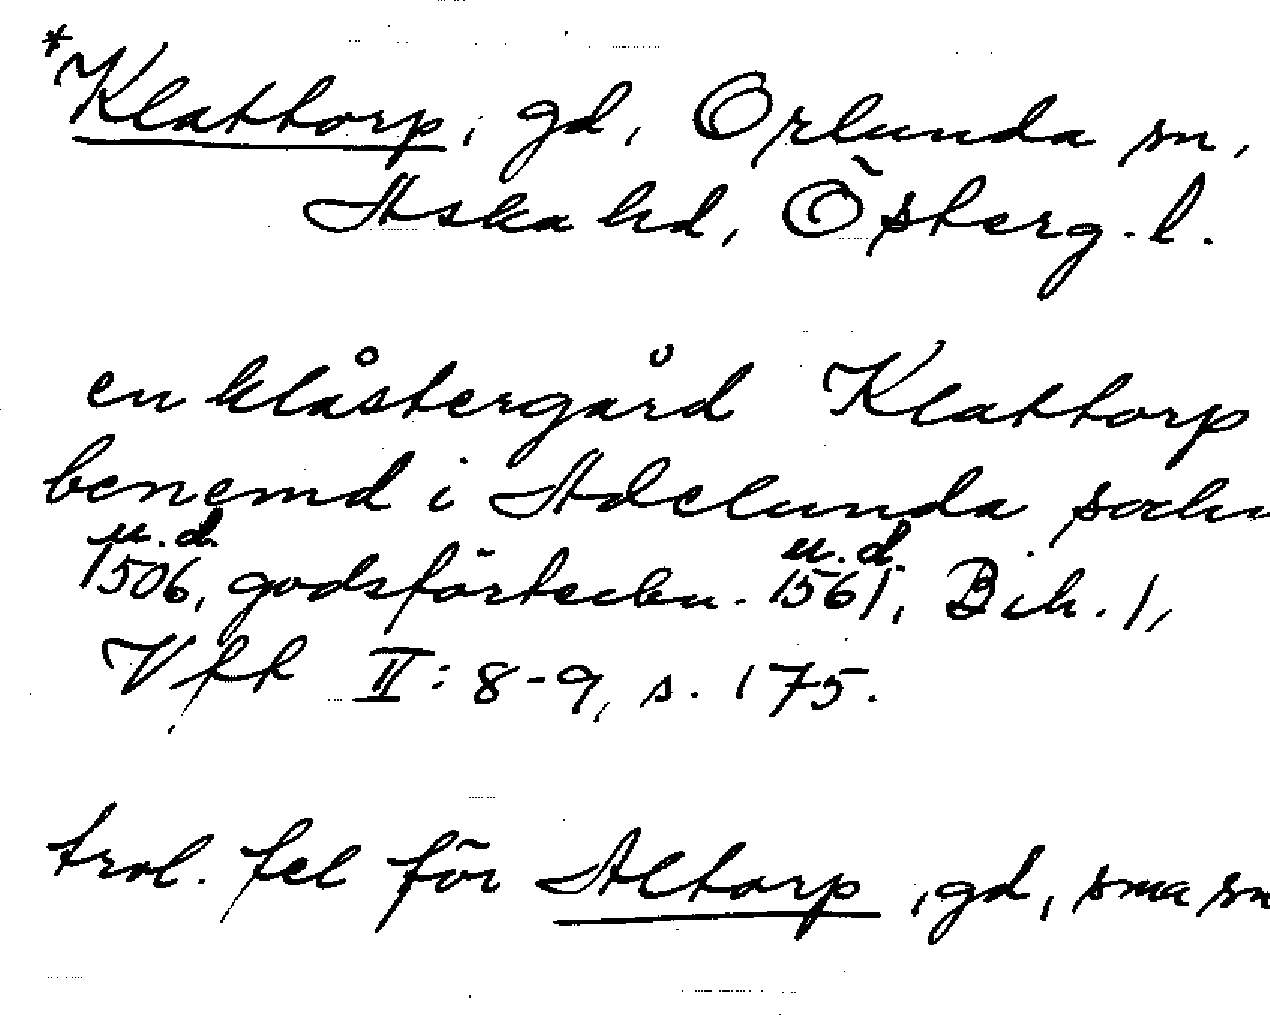 *Klattorp, gd, Orlunda sn,
Aska hd, Österg. l.
en klåstergård Klattorp
benemd i Adelunda sochn
u.d. u.d.
1506, godsförteckn. 1561, Bih. 1,
Vff II: 8-9, s. 175.
trol. fel för Altorp, gd, sma sn